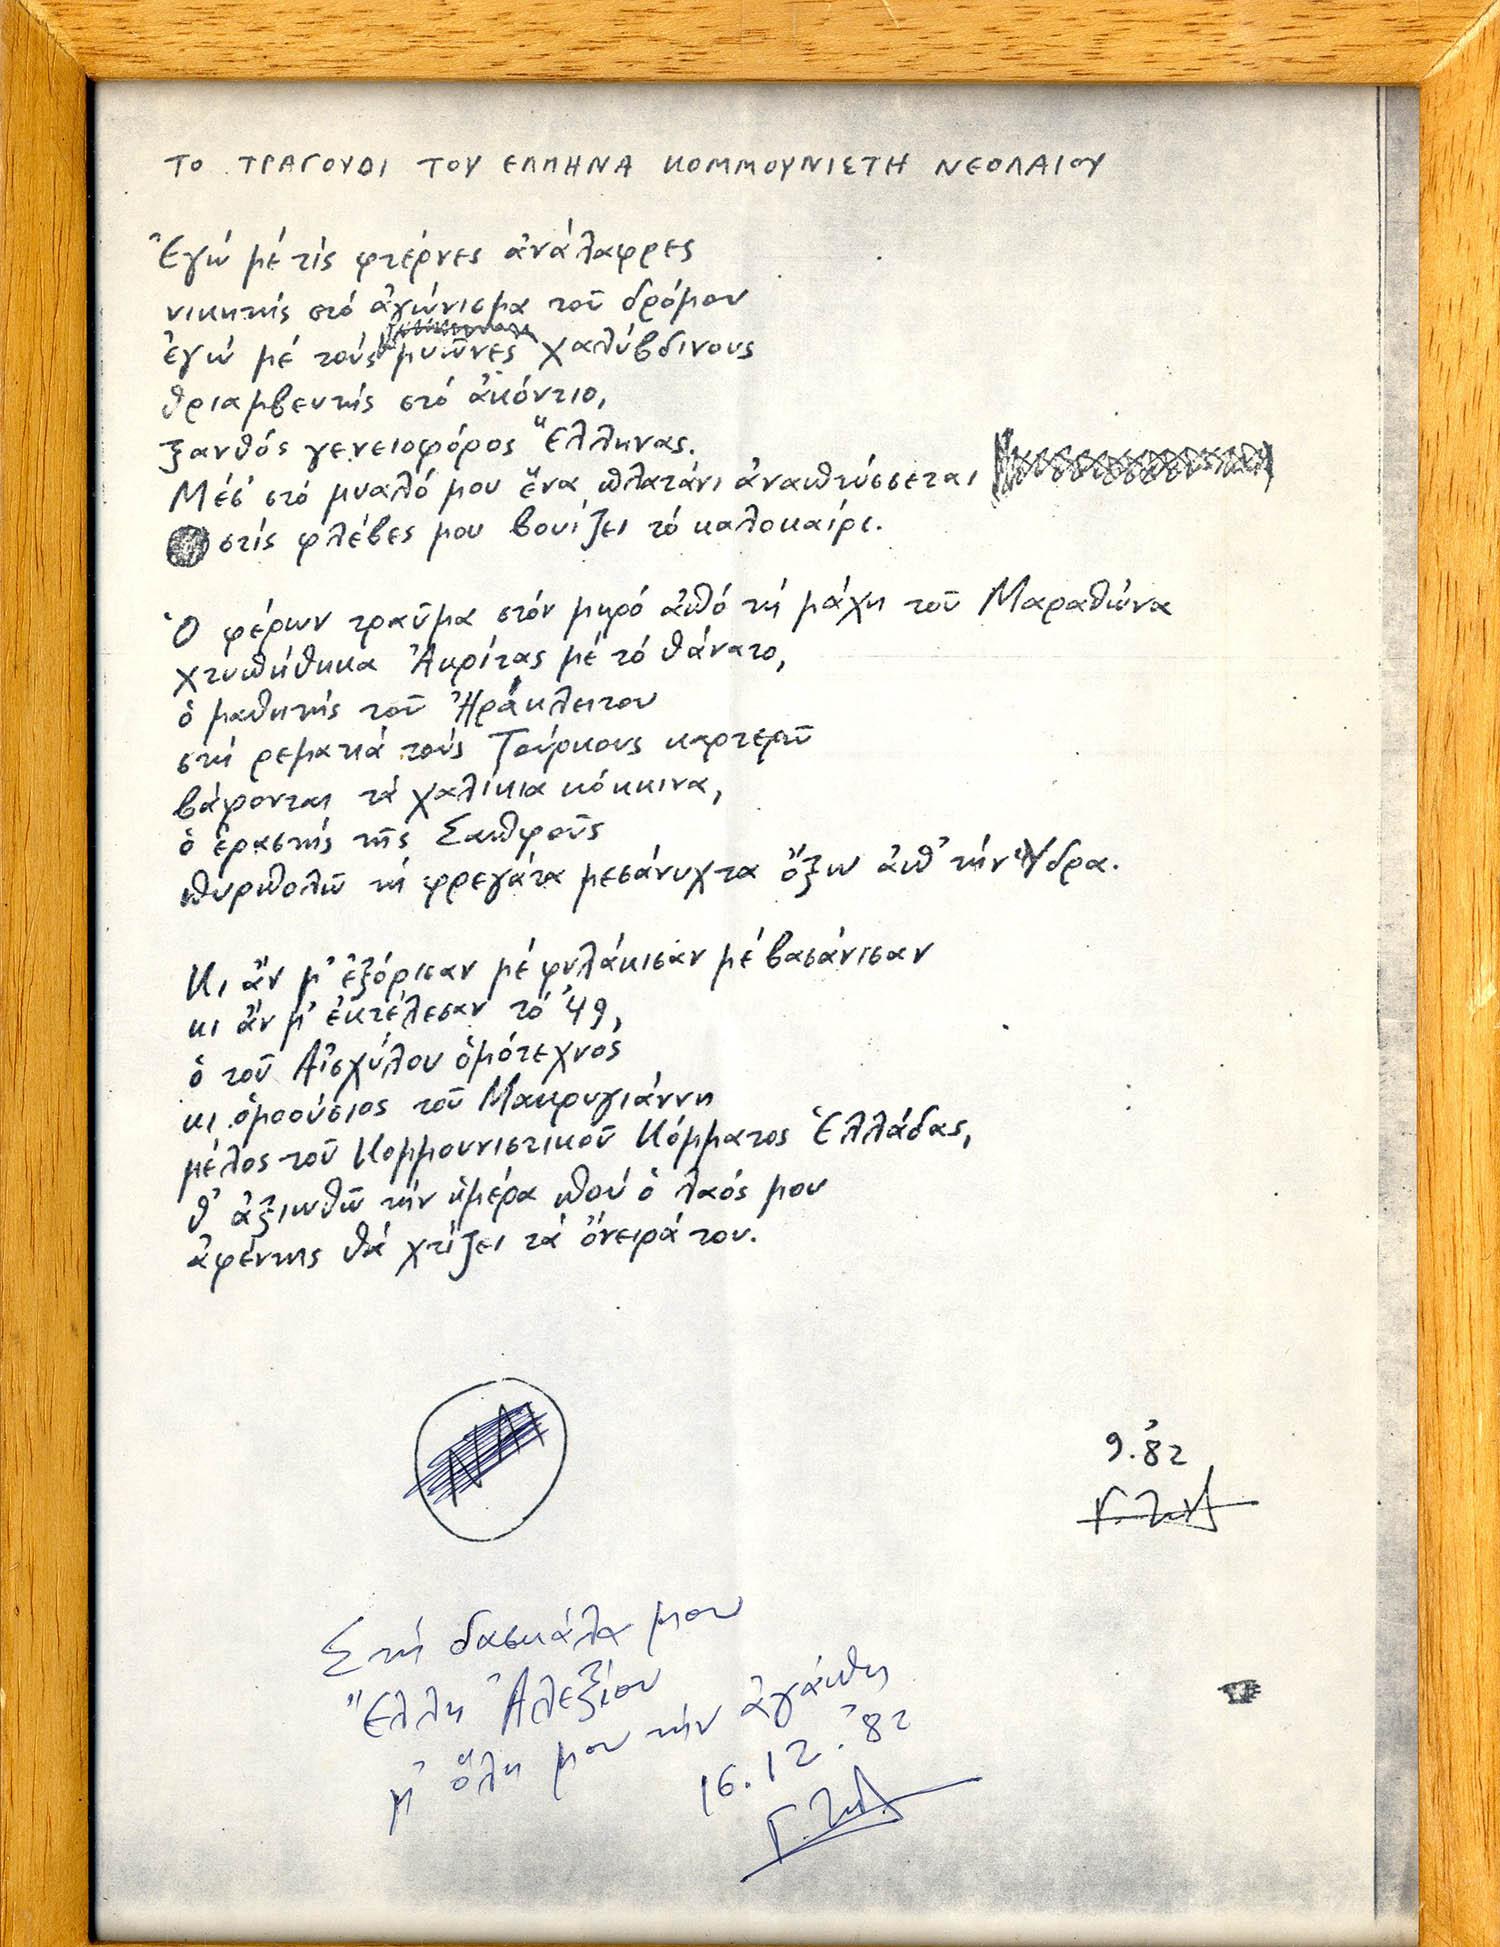 ΤΟ ΤΡΑΓΟΥΔΙ ΤΟΥ ΕΛΛΗΝΑ ΚΟΜΜΟΥΝΙΣΤΗ ΝΕΟΛΑΙΟΥ
Ἐγώ μέ τίς φτέρνες ἀνάλαφρες
νικητής στό ἀγώνισμα τοῦ δρόμου
ἐγώ μέ τούς μυῶνες χαλύβδινους
θριαμβευτής στό ἀκόντιο,
ξανθός γενειοφόρος Ἕλληνας.
Μέσ' στό μυαλό μου ἕνα πλατάνι ἀναπτύσσεται
στίς φλέβες μου βουίζει τό καλοκαίρι.
Ὁ φέρων τραῦμα στόν μηρό ἀπό τή μάχη τοῦ Μαραθώνα
χτυπήθηκα Ἀκρίτας μέ τό θάνατο,
ὁ μαθητής τοῦ Ἡράκλειτου
στή ρεματιά τούς Τούρκους καρτερῶ
βάφονται τά χαλίκια κόκκινα,
ὁ ἐραστής τῆς Σαπφοῦς
πυρπολῶ τή φρεγάτα μεσάνυχτα ὄξω ἀπ' τήν Ὕδρα.
Κι ἄν μ' ἐξόρισαν μέ φυλάκισαν μέ βασάνισαν
κι ἄν μ' ἐκτέλεσαν τό '49,
ὁ τοῦ Αἰσχύλου ὁμότεχνος
κι ὁμοούσιος τοῦ Μακρυγιάννη
μέλος τοῦ Κομμουνιστικοῦ Κόμματος Ἑλλάδας,
θ' ἀξιωθῶ τήν ἡμέρα πού ὁ λαός μου
ἀφέντης θά χτίζει τά ὄνειρά του.
9.'82
Στή δασκάλα μου
Ἕλλη Ἀλεξίου
μ' ὅλη μου τήν ἀγάπη
16.12.'82